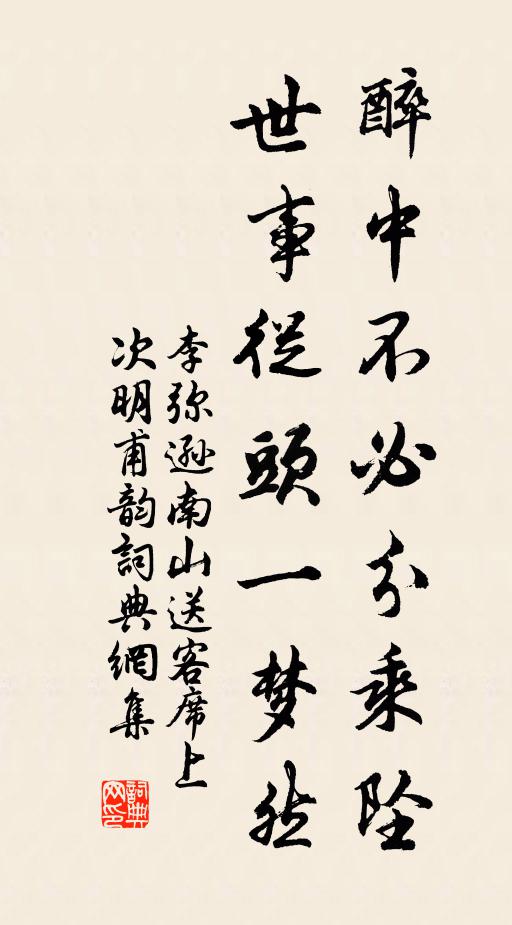 醉中不必分乘坠
世事從頭一梦然
李弥遜南山送客席上
次明甫韵詞典網集
詞典
网印